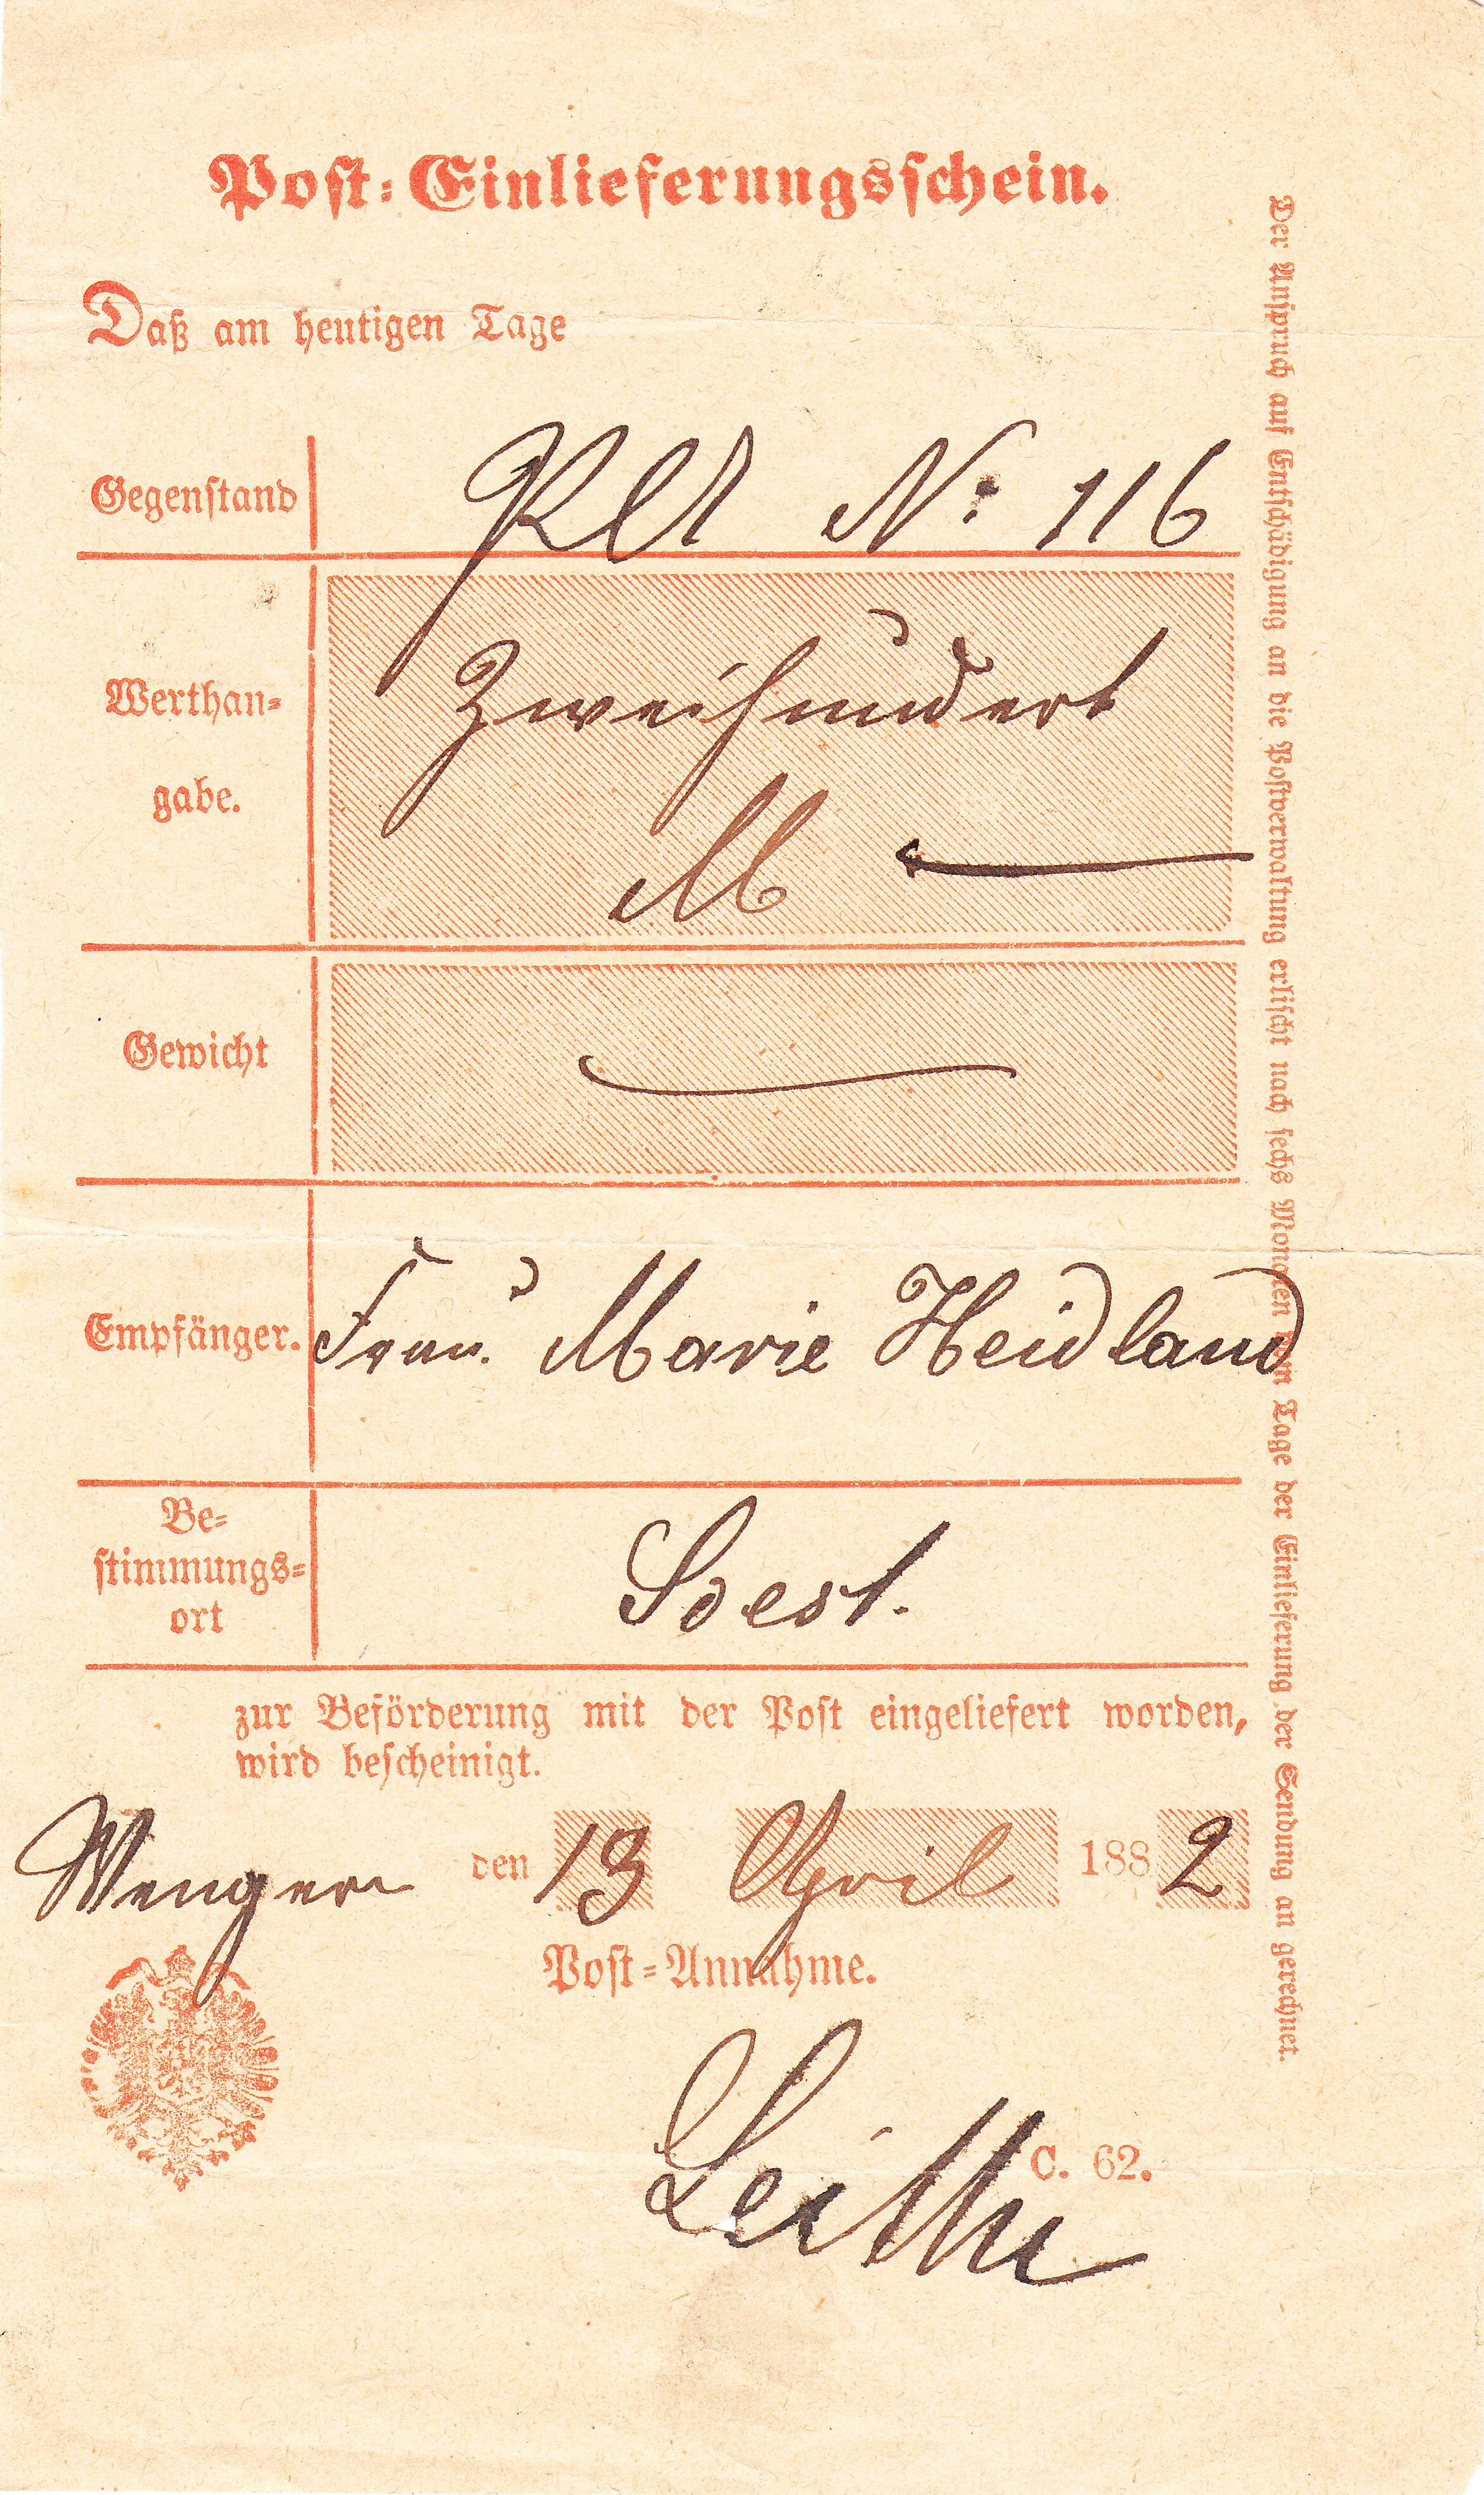 Post-Einlieferungsschein.
Daß am heutigen Tage
Gegenstand
N: 116
Werthan-
gabe.
Zweihundert
M
Gewicht
Empfänger.
Frau Marie Heidland
Be-
stimmungs-
ort
Soest.
zur Beförderung mit der Post eingeliefert worden,
wird bescheinigt.
Wengern den 13 April 1882
Post-Annahme.
C. 62.
Der Anspruch auf Entschädigung an die Postverwaltung erlischt nach sechs Monaten vom Tage der Einlieferung der Sendung an gerechnet.